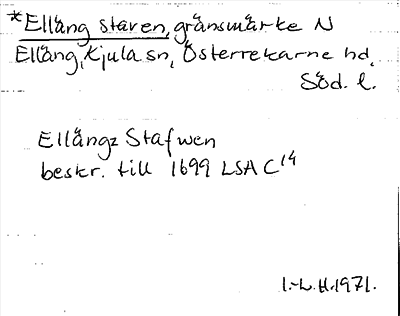 *Ellång staven, gränsmärke N
Ellång, Kjula sn, Österrekarne hd,
Söd. l.
Ellångz Stafwen
beskr. till 1699 LSA C14
I.-L.H. 1971.